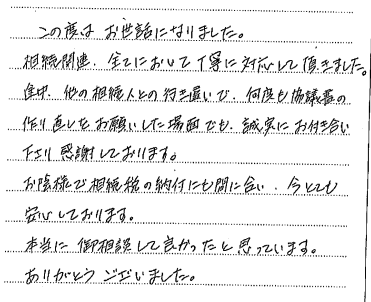 この度は お世話になりました。
相続関連、全てにおいて丁寧に対応して頂きました。
途中、他の相続人との行き違いで、何度も協議書の
作り直しをお願いした場面でも、誠実にお付き合い
下さり感謝しております。
お陰様で相続税の納付にも間に合い、今とても
安心しております。
本当に 御相談して良かったと思っています。
ありがとうございました。